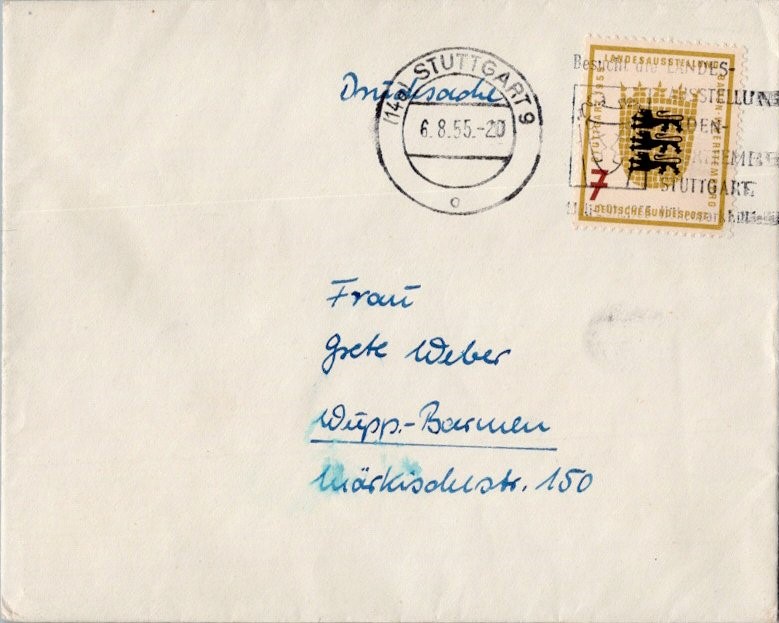 Drucksache
(14a) STUTTGART 9
6.8.55.-20
o
Besucht die LANDES-
STELLUN
DEN-
STUTTGART
LANDESAUSSTELLUNG
BADEN-WÜRTTEMBERG
7
DEUTSCHE BUNDESPOST
Frau
Grete Weber
Wupp.-Barmen
Märkischestr. 150